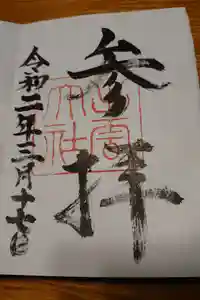 参拝
出雲大社
令和二年三月十七日